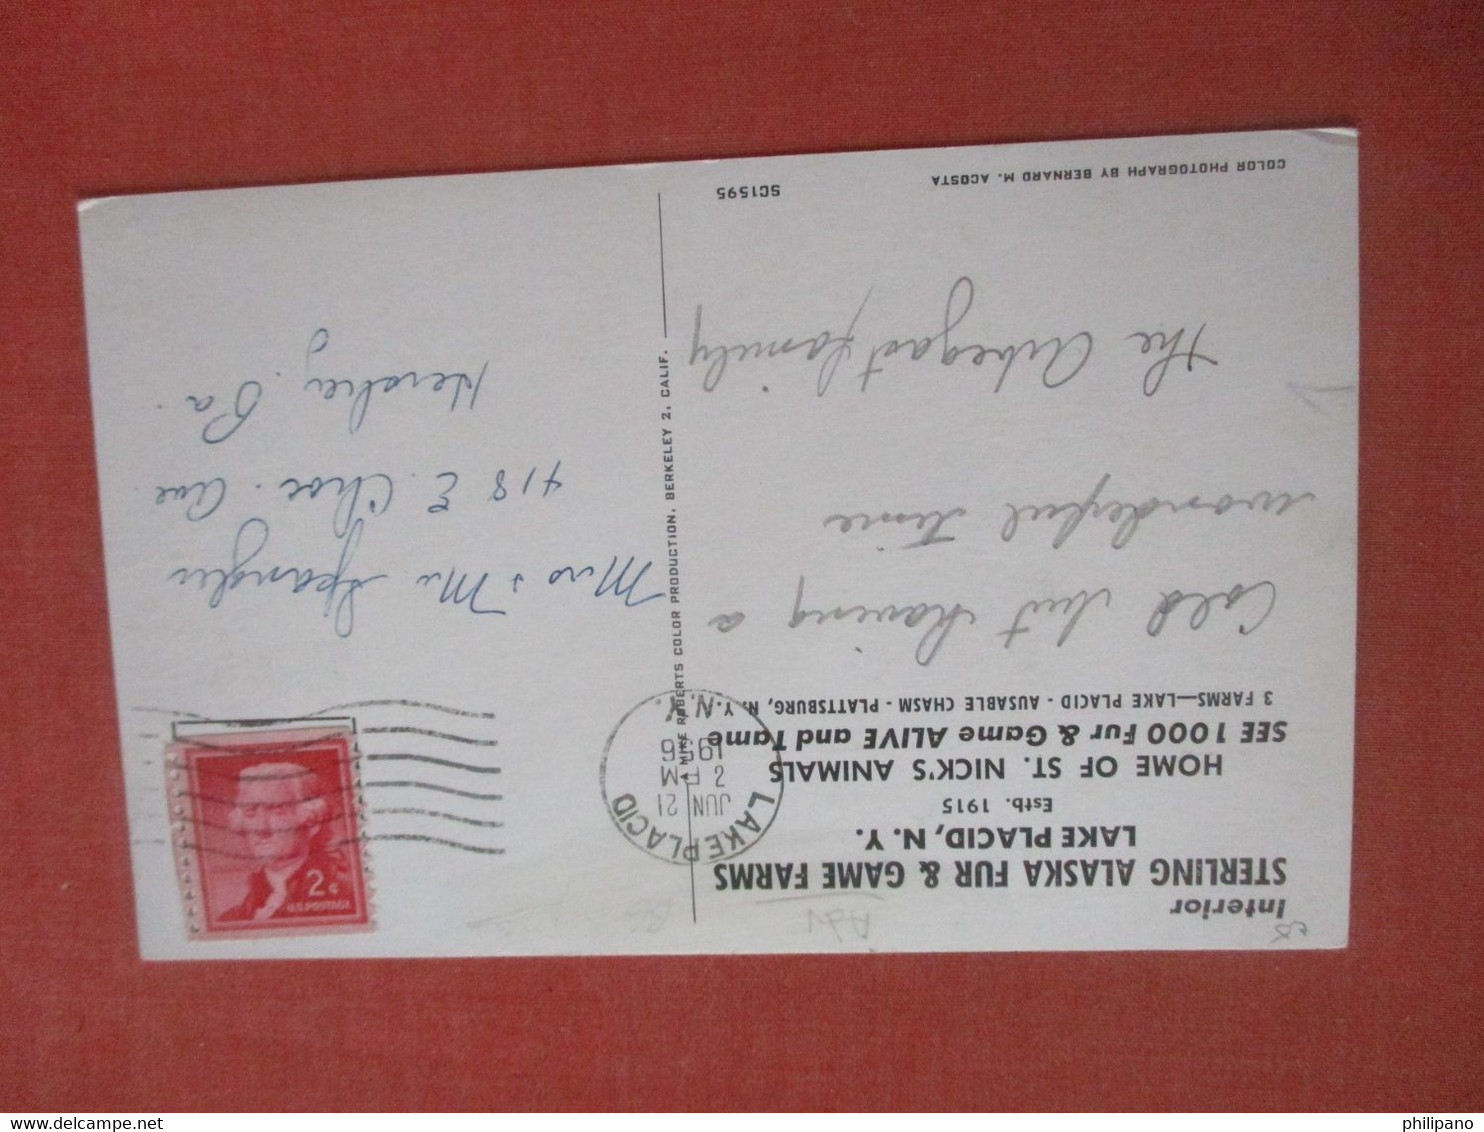 Interior
STERLING ALASKA FUR & GAME FARMS
LAKE PLACID, N. Y.
Estb. 1915
HOME OF ST. NICK'S ANIMALS
SEE 1000 Fur & Game ALIVE and Tame
3 FARMS—LAKE PLACID - AUSABLE CHASM - PLATTSBURG, N. Y.
Cold but having a
wonderful time
The Arbegast family
COLOR PHOTOGRAPH BY BERNARD M. ACOSTA
SC1595
MIKE ROBERTS COLOR PRODUCTION, BERKELEY 2, CALIF.
LAKE PLACID
JUN 21
2 PM
1956
N.Y.
2¢
U.S. POSTAGE
Mrs & Mr Spangler
418 E. Choc. Ave.
Hershey, Pa.
Adv
philipano